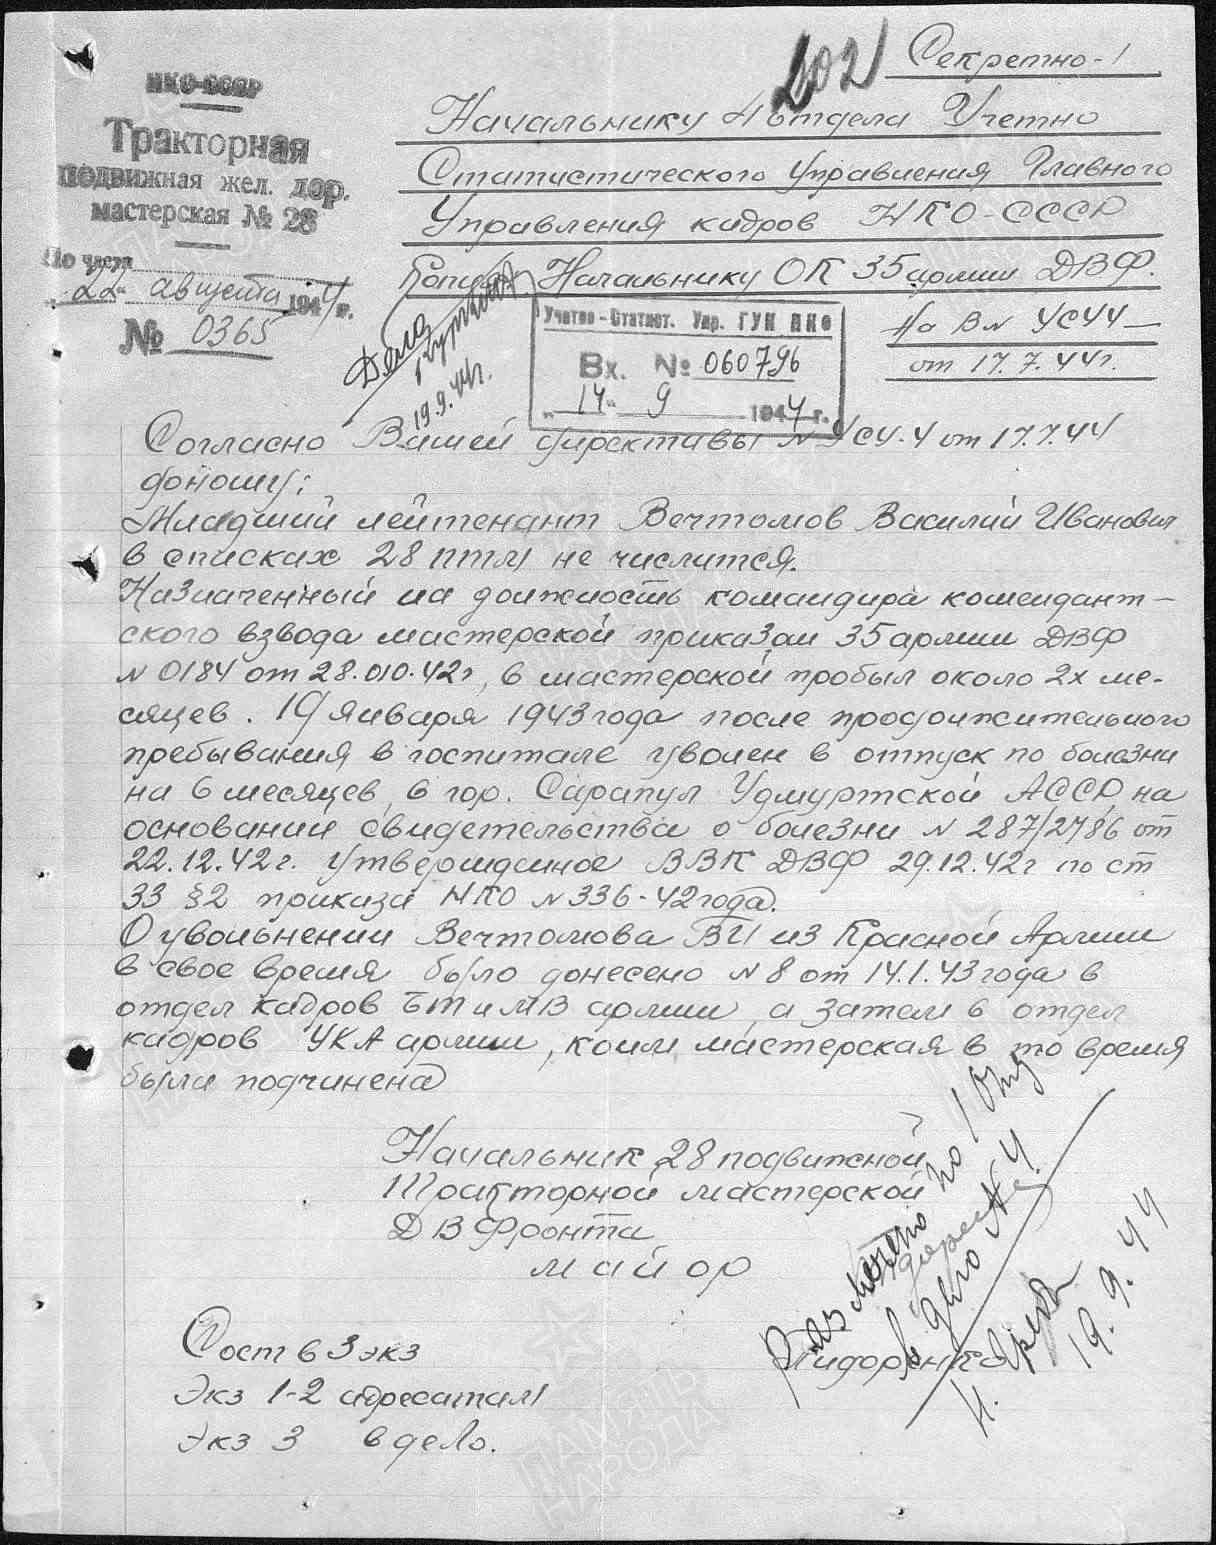 202
Секретно-1
НКО-СССР
Тракторная
подвижная жел. дор.
мастерская № 28
По части
„22“ августа 1944 г.
№ 0365
Начальнику 4 отдела Учетно
Статистического Управления Главного
Управления кадров НКО-СССР
Копия: Начальнику ОК 35 армии ДВФ.
На В№ УС44
от 17.7.44г.
Дела
19.9.44г.
Учетно-Статист. Упр. ГУК НКО
Вх. № 060796
„14“ 9 1944 г.
Согласно Вашей директивы № УС4-4 от 17.7.44
доношу:
Младший лейтенант Вечтомов Василий Иванович
в списках 28 ПТМ не числится.
Назначенный на должность командира комендант-
ского взвода мастерской приказом 35 армии ДВФ
№ 0184 от 28.010.42г, в мастерской пробыл около 2х ме-
сяцев. 19 января 1943 года после продолжительного
пребывания в госпитале уволен в отпуск по болезни
на 6 месяцев, в гор. Сарапул Удмуртской АССР, на
основании свидетельства о болезни № 287/2786 от
22.12.42г. Утвержденное ВВК ДВФ 29.12.42г по ст
33 §2 приказа НКО № 336-42 года.
О увольнении Вечтомова ВИ из Красной Армии
в свое время было донесено № 8 от 14.1.43 года в
отдел кадров БТ и МВ армии, а затем в отдел
кадров УКА армии, коим мастерская в то время
была подчинена
Начальник 28 подвижной
Тракторной мастерской
ДВФронта
майор
Сидоренко
Размечено по 1 Отд
в дело № 4.
19.9.44
Сост в 3 экз
Экз 1-2 адресатам
Экз 3 в дело.
ПАМЯТЬ
НАРОДА